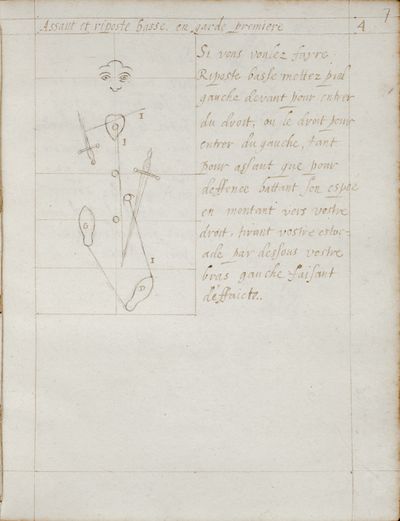 Assaut et riposte basse en garde premiere
4
7
Si vous voulez fayre
Riposte basse mettez pied
gauche devant pour entrer
du droit, ou le droit pour
entrer du gauche, tant
pour assaut que pour
deffence battant son espée
en montant vers vostre
droit, tirant vostre estoc-
ade par dessous vostre
bras gauche faisant
deffaicte..
1
1
G
1
D